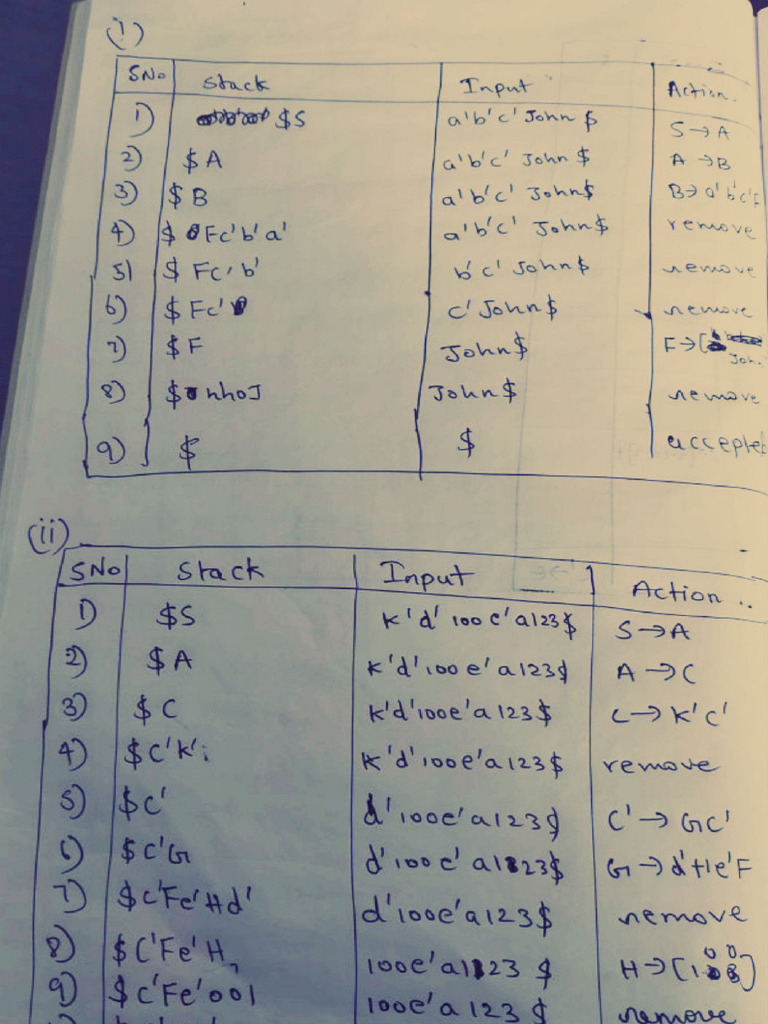 (i)
SNo Stack Input Action.
1) $S a'b'c' John $ S→A
2) $A a'b'c' John $ A→B
3) $B a'b'c' John$ B→a'b'c'F
4) $ Fc'b'a' a'b'c' John$ remove
5) $ Fc'b' b'c' John$ remove
6) $ Fc' c' John$ remove
7) $ F John$ F→[
8) $ nhoJ John$ remove
9) $ $ accepted
(ii)
SNo Stack Input Action..
1) $S k'd' 100 e'a123$ S→A
2) $A k'd'100 e'a123$ A→C
3) $C k'd'100e'a 123$ C→k'c'
4) $C'k' k'd'100e'a123$ remove
5) $C' d'100e'a123$ C'→GC'
6) $C'G d'100 e' a123$ G→d'He'F
7) $C'Fe'Hd' d'100e'a123$ remove
8) $C'Fe'H 100e'a123 $ H→[100]
9) $C'Fe'001 100e'a 123 $ remove